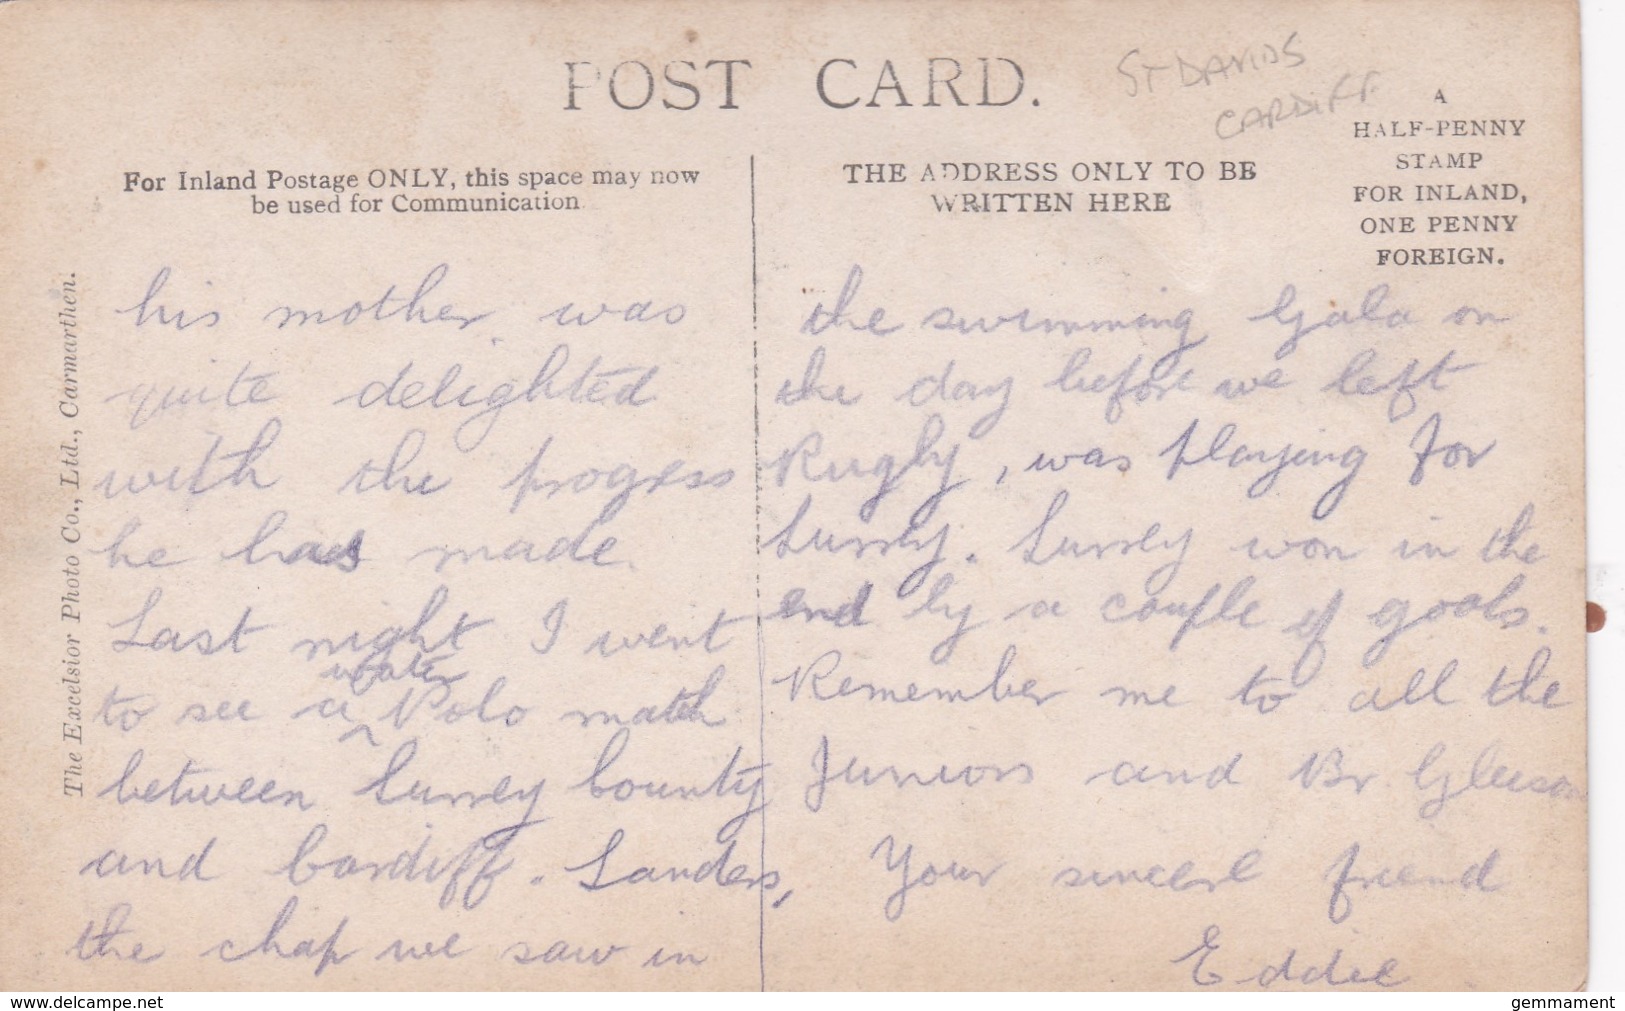 POST CARD.
ST DAVIDS
CARDIFF.
A
HALF-PENNY
STAMP
FOR INLAND,
ONE PENNY
FOREIGN.
For Inland Postage ONLY, this space may now
be used for Communication
THE ADDRESS ONLY TO BE
WRITTEN HERE
The Excelsior Photo Co., Ltd., Carmarthen.
his mother was
quite delighted
with the progress
he has made.
Last night I went
to see a water Polo match
between Surrey County
and Cardiff. Sanders,
the chap we saw in
the swimming Gala on
the day before we left
Rugby, was playing for
Surrey. Surrey won in the
end by a couple of goals.
Remember me to all the
Juniors and Br. Gleeson
Your sincere friend
Eddie
www.delcampe.net
gemmament